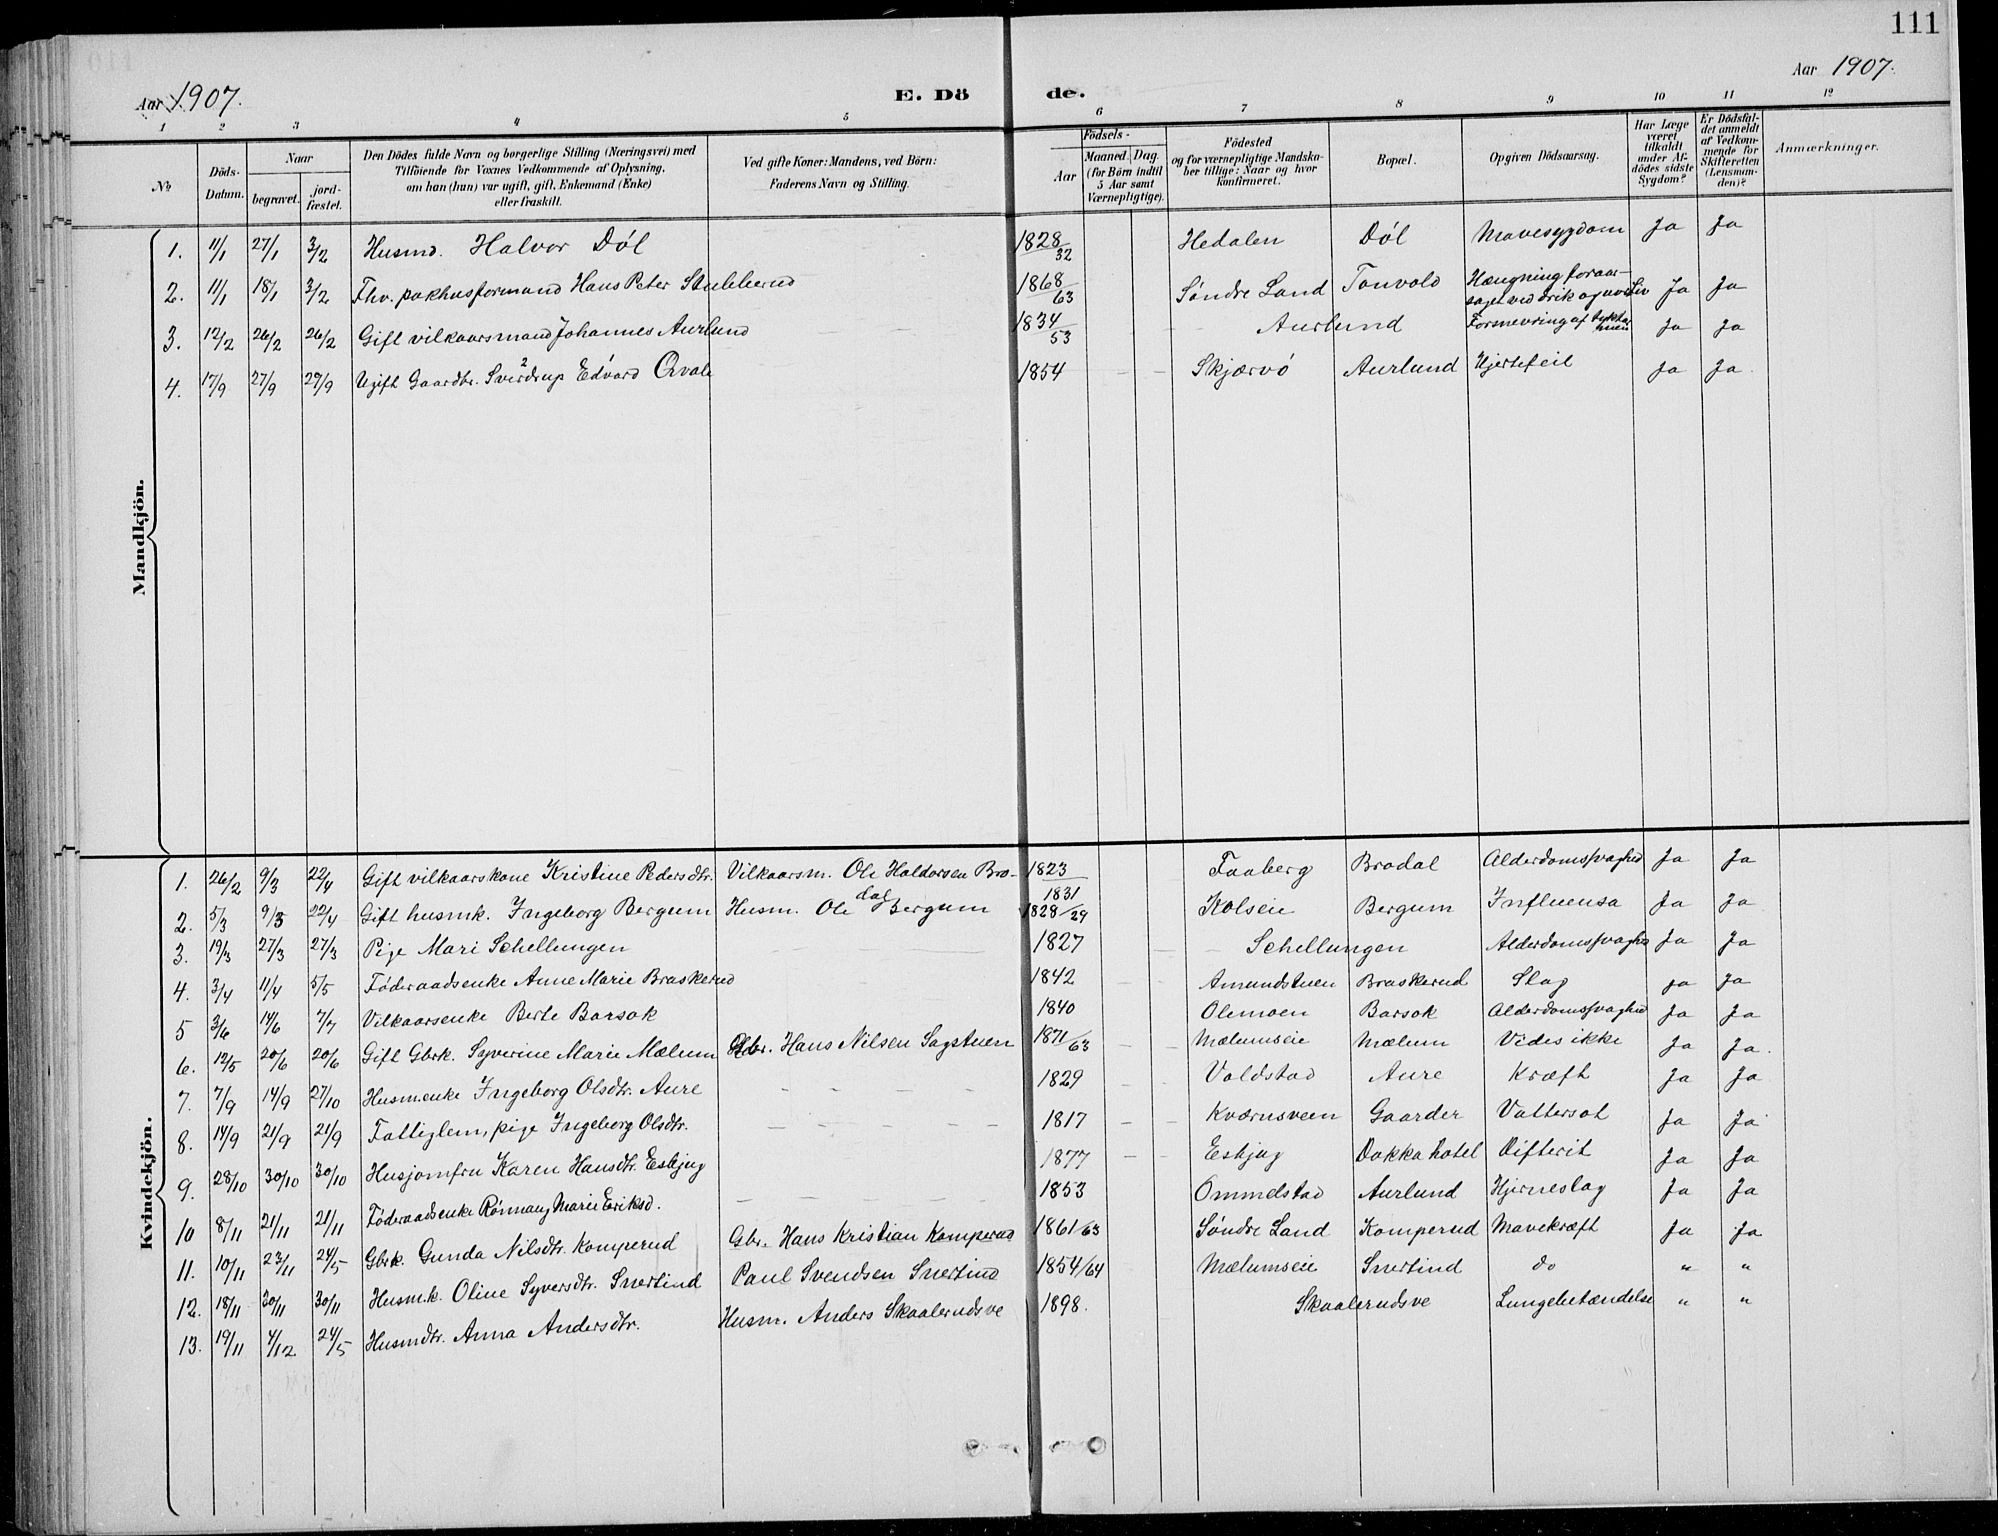 111
Aar 1907.
E. Dö de.
Aar 1907.
1 2 3 4 5 6 7 8 9 10 11 12
№
Döds-Datum.
Naar
begravet.
jord-fæstet.
Den Dödes fulde Navn og borgerlige Stilling (Næringsvei) med
Tilföiende for Voxnes Vedkommende af Oplysning,
om han (hun) var ugift, gift, Enkemand (Enke)
eller fraskilt.
Ved gifte Koner: Mandens, ved Börn:
Faderens Navn og Stilling.
Födsels-
Aar
Maaned. Dag.
(for Börn indtil
5 Aar samt
Værnepligtige).
Födested
og for værnepligtige Mandska-
ber tillige: Naar og hvor
konfirmeret.
Bopæl.
Opgiven Dödsaarsag.
Har Læge
været
tilkaldt
under Af-
dödes sidste
Sygdom?
Er Dödsfal-
det anmeldt
af Vedkom-
mende for
Skifteretten
(Lensman-
den)?
Anmærkninger.
Mandkjön.
1. 11/1 27/1 3/2 Husmd. Halvor Døl 1828/32 Hedalen Døl Mavesygdom Ja Ja
2. 11/1 18/1 3/2 Fhv. pakhusformand Hans Peter Stubberud 1868/63 Søndre Land Tonvold Hængning foraar-
saget ved drik og Ja Ja
3. 12/2 26/2 26/2 Gift vilkaarsmand Johannes Aurlund 1834/53 Aurlund af Ja Ja
4. 17/9 27/9 29/9 Ugift Gaardbr. Sverdrup Edvard Qvale 1854 Skjærvø Aurlund Hjertefeil Ja Ja.
Kvindekjön.
1. 26/2 9/3 22/4 Gift vilkaarskone Kristine Pedersdtr. Vilkaarsm. Ole Haldorsen Bro-
dal 1823/1831 Faaberg Brodal Alderdomssvaghed Ja Ja
2. 5/3 9/3 22/4 Gift husmk. Ingeborg Bergum Husm. Ole Bergum 1828/29 Kolseie Bergum Influensa Ja Ja
3. 19/3 27/3 27/3 Pige Mari Schellungen 1827 Schellungen Alderdomssvaghed Ja Ja
4. 3/4 11/4 5/5 Føderaadsenke Anne Marie Braskerud 1842 Amundstuen Braskerud Slag ja Ja
5 3/6 14/6 7/7 Vilkaarsenke Berte Barsok 1840 Olemoen Barsok Alderdomssvaghed Ja Ja
6. 12/5 20/6 20/6 Gift Gbrk. Syverine Marie Mælum Gbr. Hans Nilsen Sagstuen 1871/63 Mælumseie Mælum Vides ikke Ja Ja.
7. 7/9 14/9 27/10 Husmenke Ingeborg Olsdtr. Aure 1829 Valdstad Aure Kræft Ja Ja
8. 14/9 21/9 21/9 Fattiglem, pige Ingeborg Olsdtr. 1817 Kværnsveen Gaarder Vattersot Ja Ja
9. 28/10 30/10 30/10 Husjomfru Karen Hansdtr. Esbjug 1877 Esbjug Dokka hotel Difterit Ja Ja
10 8/11 21/11 21/11 Føderaadsenke Rønnaug Marie Eriksd. 1853 Ommelstad Aurlund Hjerneslag Ja Ja
11. 10/11 23/11 24/5 Gbrk. Gunda Nilsdtr. Komperud Gbr. Hans Kristian Komperud 1861/63 Søndre Land Komperud Mavekræft Ja Ja
12. 18/11 30/11 30/11 Husm.k. Oline Syversdtr. Snertind Paul Svendsen Snertind 1854/64 Mælumseie Snertind do " "
13. 19/11 4/12 24/5 Husmdtr. Anna Andersdtr. Husm. Anders Skaalerudsve 1898. Skaalerudsve Lungebetændelse " "